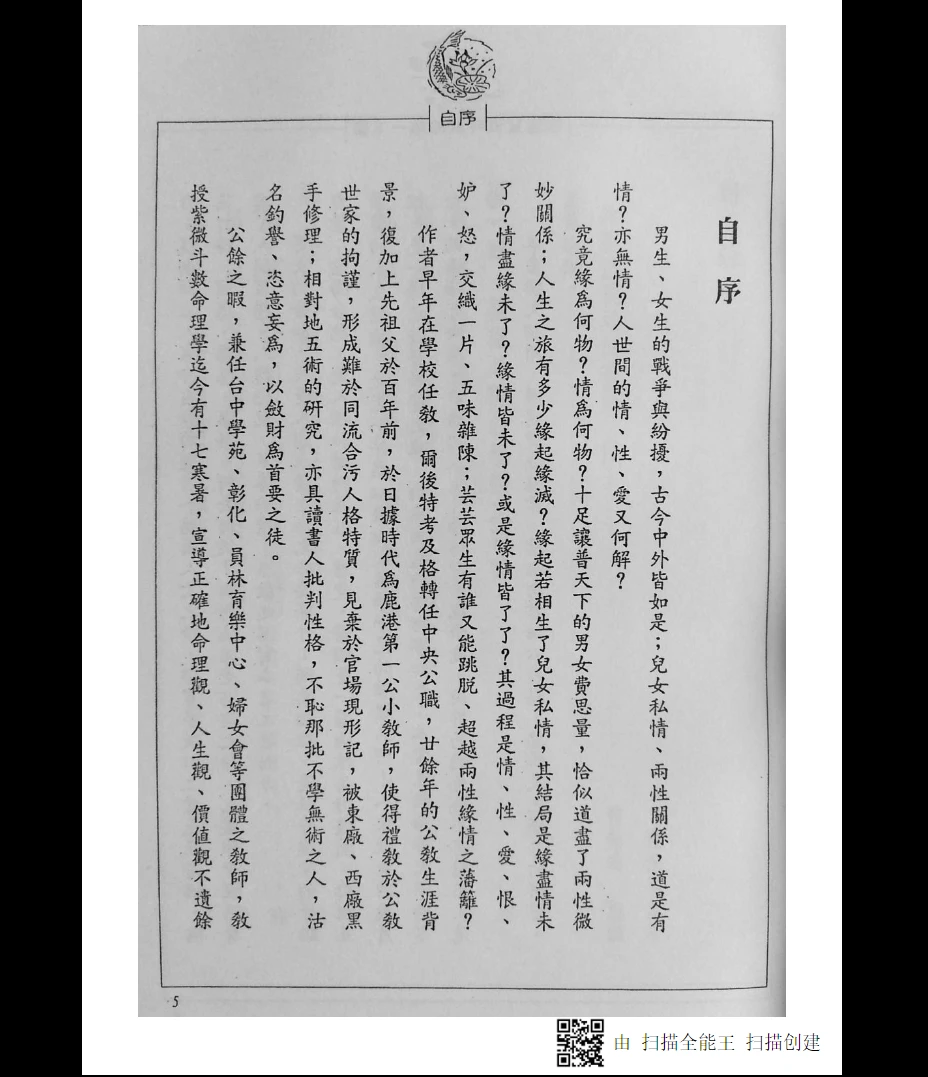 自序
自序
男生、女生的戰爭與紛擾，古今中外皆如是；兒女私情、兩性關係，道是有
情？亦無情？人世間的情、性、愛又何解？
究竟緣為何物？情為何物？十足讓普天下的男女費思量，恰似道盡了兩性微
妙關係；人生之旅有多少緣起緣滅？緣起若相生了兒女私情，其結局是緣盡情未
了？情盡緣未了？緣情皆未了？或是緣情皆了了？其過程是情、性、愛、恨、
妒、怒，交織一片、五味雜陳；芸芸眾生有誰又能跳脱、超越兩性緣情之藩籬？
作者早年在學校任教，爾後特考及格轉任中央公職，廿餘年的公教生涯背
景，復加上先祖父於百年前，於日據時代為鹿港第一公小教師，使得禮教於公教
世家的拘謹，形成難於同流合污人格特質，見棄於官場現形記，被東廠、西廠黑
手修理；相對地五術的研究，亦具讀書人批判性格，不恥那批不學無術之人，沽
名釣譽、恣意妄為，以斂財為首要之徒。
公餘之暇，兼任台中學苑、彰化、員林育樂中心、婦女會等團體之教師，教
授紫微斗數命理學迄今有十七寒暑，宣導正確地命理觀、人生觀、價值觀不遺餘
5
由 扫描全能王 扫描创建